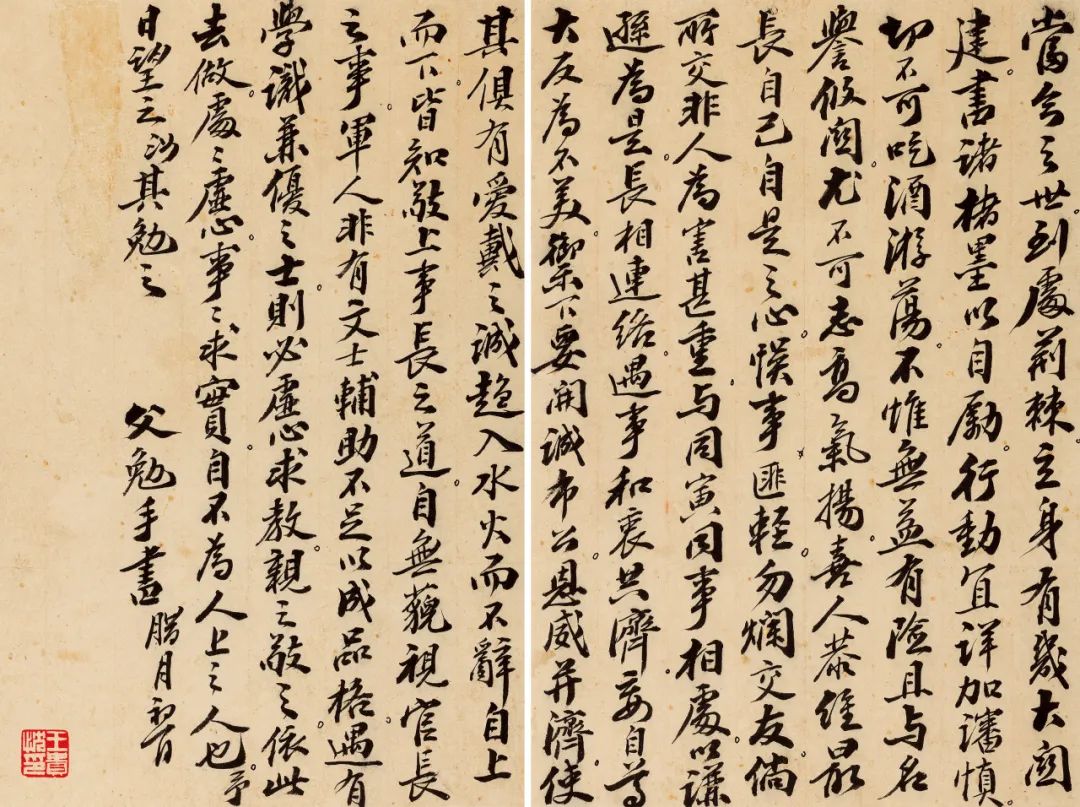 當今之世到處荊棘立身有幾大関
建書諸楮墨以自勵。行動宜詳加瀋慎
切不可吃酒游蕩不惟無益有險且与名
譽攸関。尤不可志高氣揚喜人恭維最
長自己自是之心悮事匪輕。勿爛交友倘
所交非人為害甚重。与同寅同事相處以謙
遜為是。長相連絡。遇事和衷共濟。妄自尊
大反為不美。御下要開誠布公。恩威并濟。使
其俱有愛戴之誠。趨入水火而不辭。自上
而下。皆知敬上事長之道。自無藐視官長
之事。軍人非有文士輔助不足以成品格。遇有
學識兼優之士則必虛心求教。親之敬之。依此
去做。處々虛心。事々求實。自不為人上之人也。予
日望之汝其勉之
父勉手書 臘月初
王貴忱印